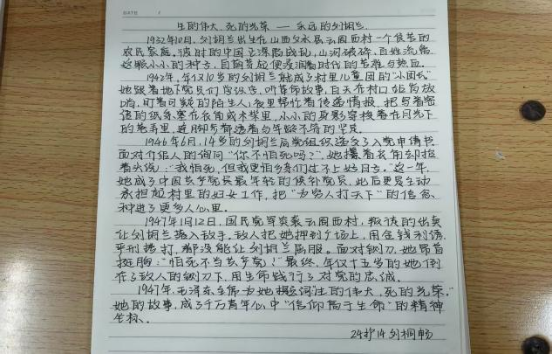 生的伟大,死的光荣——永远的刘胡兰
1932年10月,刘胡兰出生在山西文水县云周西村一个贫苦的
农民家庭。彼时的中国已深陷战乱,山河破碎,百姓流离
这颗小小的种子,自萌芽起便浸润着时代的苦难与热血。
1942年,年仅10岁的刘胡兰就成了村里儿童团的"小团长"
她跟着地下党员们学认字、听革命故事,白天在村口站岗放
哨,盯着可疑的陌生人;夜里帮忙着传递情报,把写着密
信的纸条塞在衣角或术里,小小的身影穿梭着在月光下
的巷弄里,连脚步都透着与年龄不符的坚定。
1946年6月,14岁的刘胡兰向党组织递交了入党申请书
面对介绍人的询问"你不怕死吗?",她攥着衣角却挺
着头说:"我怕死,但我更怕乡亲们过不上好日子。"这一年
她成了中国共产党最年轻的候补党员,此后更是主动
承担起村里的妇女工作,把"为穷人打天下"的信念
种进了更多人心里。
1947年1月12日,国民党军突袭云周西村,叛徒的出卖
让刘胡兰落入敌手。敌人把她押到广场上,用金钱利诱
严刑拷打,都没能让刘胡兰屈服。面对铡刀,她昂首
挺胸:"怕死不当共产党!"最终,年仅十五岁的她倒
在了敌人的铡刀下,用生命践行了对党的忠诚。
1947年,毛泽东主席为她题词"生的伟大,死的光荣"
她的故事,成了千万青年心中"信仰高于生命"的精神
坐标。
24护14 刘桐畅